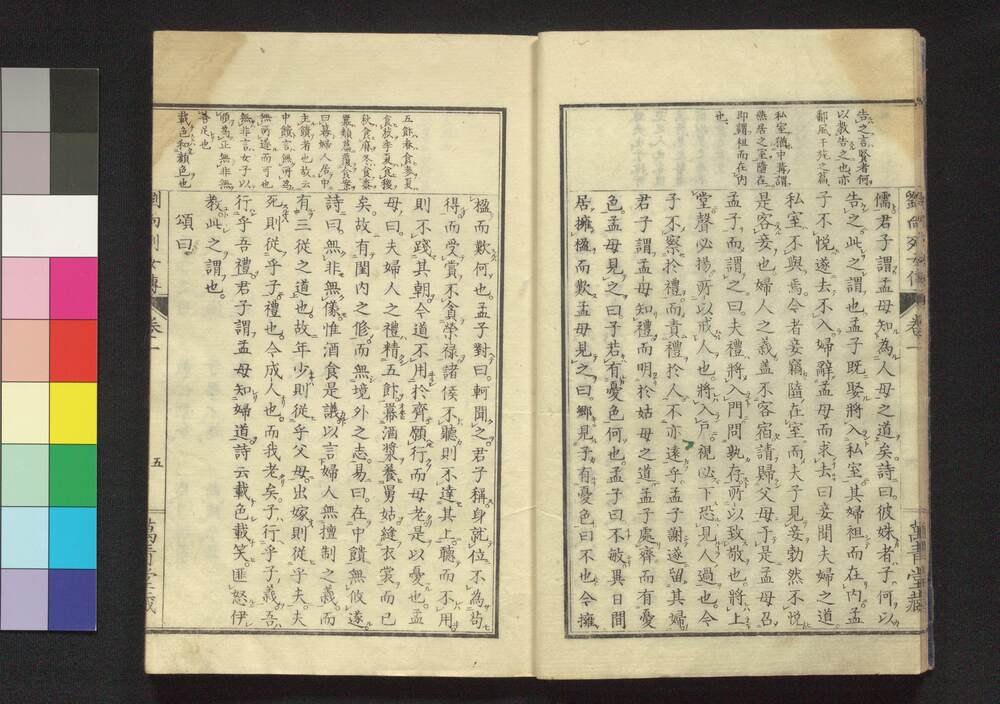 告之言賢者何
以教告之也亦
鄘風干旄之篇
私室猶中冓謂
燕居之室隨在
即謂袒而在内
也
儒君子謂孟母知為人母之道矣詩曰彼姝者子何以
告之此之謂也孟子既娶將入私室其婦袒而在内孟
子不悅遂去不入婦辭孟母而求去曰妾聞夫婦之道
私室不與焉今者妾竊隨在室而夫子見妾勃然不悅
是客妾也婦人之義蓋不客宿請歸父母于是孟母召
孟子而謂之曰夫禮將入門問孰存所以致敬也將上
堂聲必揚所以戒人也將入戶視必下恐見人過也今
子不察於禮而責禮於人不亦遠乎孟子謝遂留其婦
君子謂孟母知禮而明於姑母之道孟子處齊而有憂
色孟母見之曰子若有憂色何也孟子曰不敏異日閒
居擁楹而歎孟母見之曰鄉見子有憂色曰不也今擁
卷一
萬青堂藏
五飰春食麥夏
食菽季夏食稷
秋食麻冬食黍
曰幕婦人居中
主饋者也故云
中饋言無所
無所遂而可也
無非言女子以
順為正無非無
善足也
載色和顏色也
楹而歎何也孟子對曰軻聞之君子稱身就位不為苟
得而受賞不貪榮祿諸侯不聽則不達其上聽而不用
則不踐其朝今道不用於齊願行而母老是以憂也孟
母曰夫婦人之禮精五飰冪酒漿養舅姑縫衣裳而已
矣故有閨内之修而無境外之志易曰在中饋無攸遂
詩曰無非無儀惟酒食是議以言婦人無擅制之義而
有三從之道也故年少則從乎父母出嫁則從乎夫夫
死則從乎子禮也今成人也而我老矣子行乎子義吾
行乎吾禮君子謂孟母知婦道詩云載色載笑匪怒伊
教此之謂也
頌曰
卷一
五
萬青堂藏